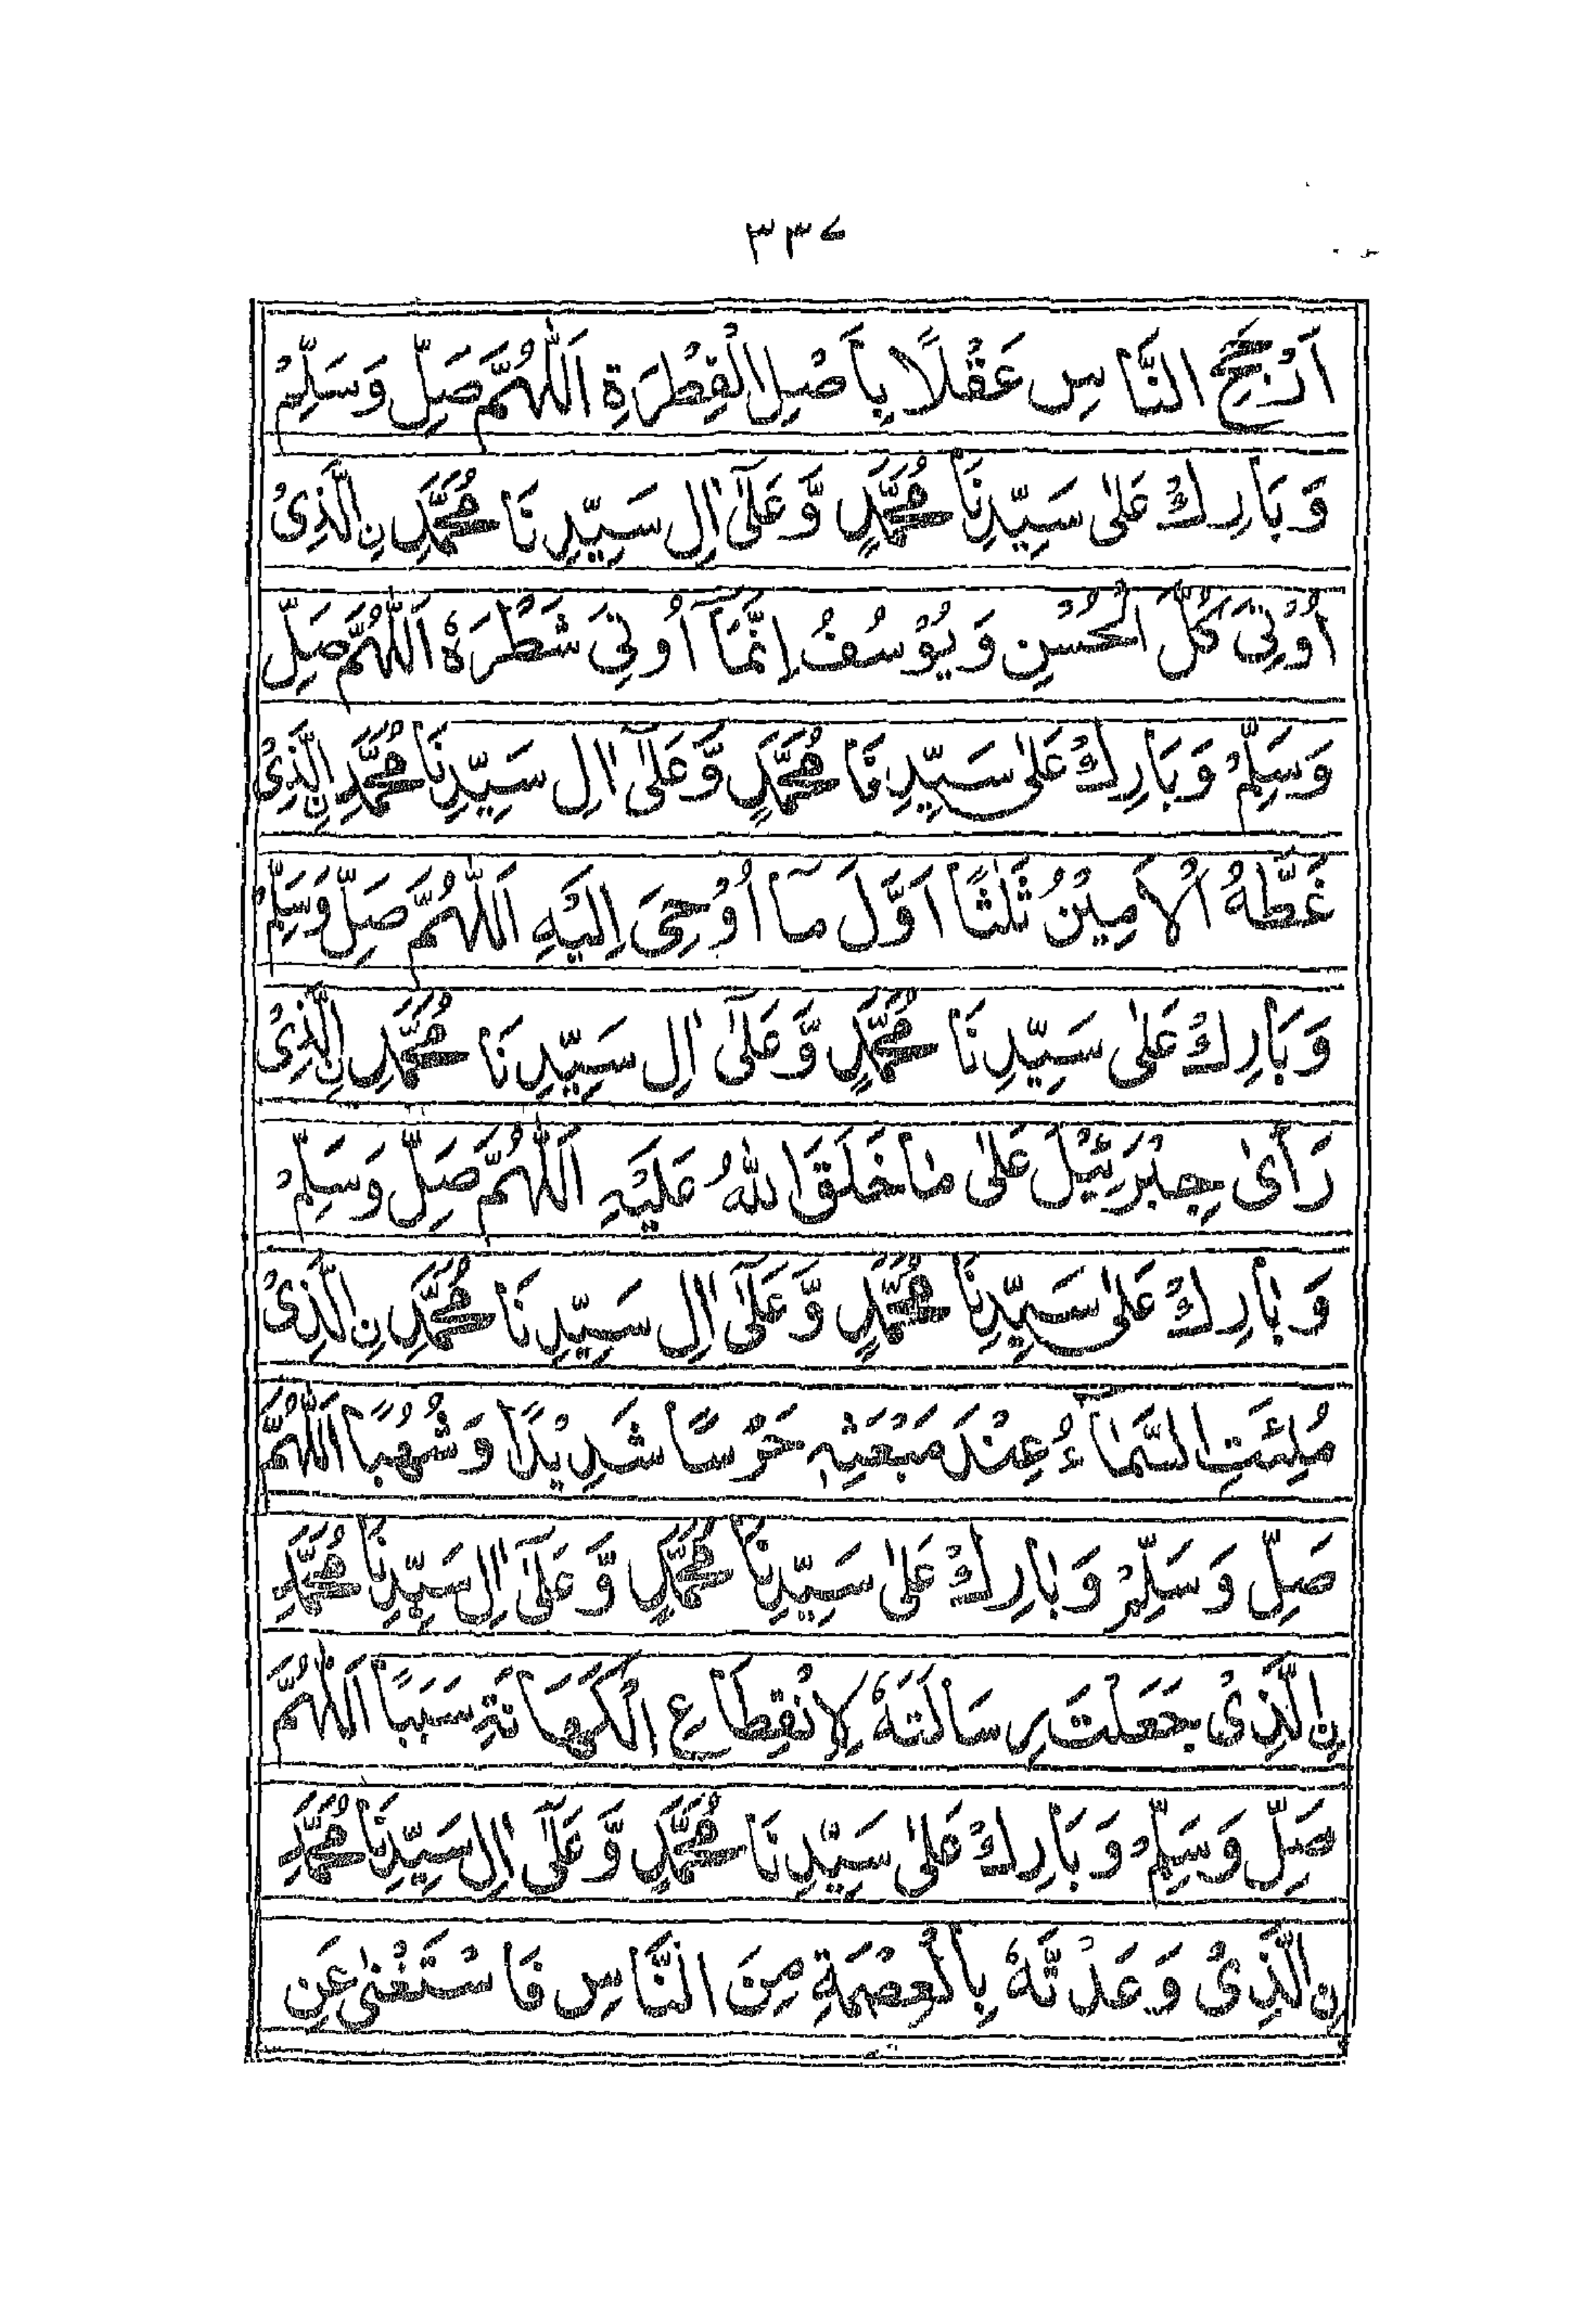 ٣٣٧
اَرْجَحِ النَّاسِ عَقْلًا بِاَصْلِ الْفِطْرَةِ اَللّٰهُمَّ صَلِّ وَسَلِّمْ
وَبَارِكْ عَلٰى سَيِّدِنَا مُحَمَّدٍ وَّعَلٰٓى اٰلِ سَيِّدِنَا مُحَمَّدِنِ الَّذِىْ
اُوْتِىَ كُلَّ الْحُسْنِ وَيُوْسُفُ اِنَّمَآ اُوتِىَ شَطْرَهٗ اَللّٰهُمَّ صَلِّ
وَسَلِّمْ وَبَارِكْ عَلٰى سَيِّدِنَا مُحَمَّدٍ وَّعَلٰٓى اٰلِ سَيِّدِنَا مُحَمَّدِنِ الَّذِىْ
غَطَّهُ الْاَمِيْنُ ثَلٰثًا اَوَّلَ مَآ اُوْحِىَ اِلَيْهِ اَللّٰهُمَّ صَلِّ وَسَلِّمْ
وَبَارِكْ عَلٰى سَيِّدِنَا مُحَمَّدٍ وَّعَلٰٓى اٰلِ سَيِّدِنَا مُحَمَّدِنِ الَّذِىْ
رَأٰى جِبْرَئِيْلَ عَلٰى مَا خَلَقَ اللّٰهُ عَلَيْهِ اَللّٰهُمَّ صَلِّ وَسَلِّمْ
وَبَارِكْ عَلٰى سَيِّدِنَا مُحَمَّدٍ وَّعَلٰٓى اٰلِ سَيِّدِنَا مُحَمَّدِنِ الَّذِىْ
مُلِئَتِ السَّمَآءُ عِنْدَ مَبْعَثِهٖ حَرَسًا شَدِيْدًا وَشُهُبًا اَللّٰهُمَّ
صَلِّ وَسَلِّمْ وَبَارِكْ عَلٰى سَيِّدِنَا مُحَمَّدٍ وَّعَلٰٓى اٰلِ سَيِّدِنَا مُحَمَّدِ
نِ الَّذِىْ جَعَلْتَ رِسَالَتَهٗ لِانْقِطَاعِ الْكَهَانَةِ سَبَبًا اَللّٰهُمَّ
صَلِّ وَسَلِّمْ وَبَارِكْ عَلٰى سَيِّدِنَا مُحَمَّدٍ وَّعَلٰٓى اٰلِ سَيِّدِنَا مُحَمَّدِ
نِ الَّذِىْ وَعَدْتَّهٗ بِالْعِصْمَةِ مِنَ النَّاسِ فَاسْتَغْنٰى عَنِ